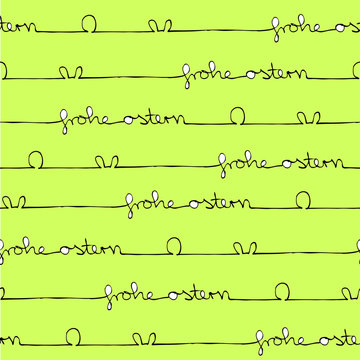 stern frohe ostern
frohe ostern
frohe ostern
frohe ostern
frohe ostern
frohe ostern
frohe ostern
frohe ostern